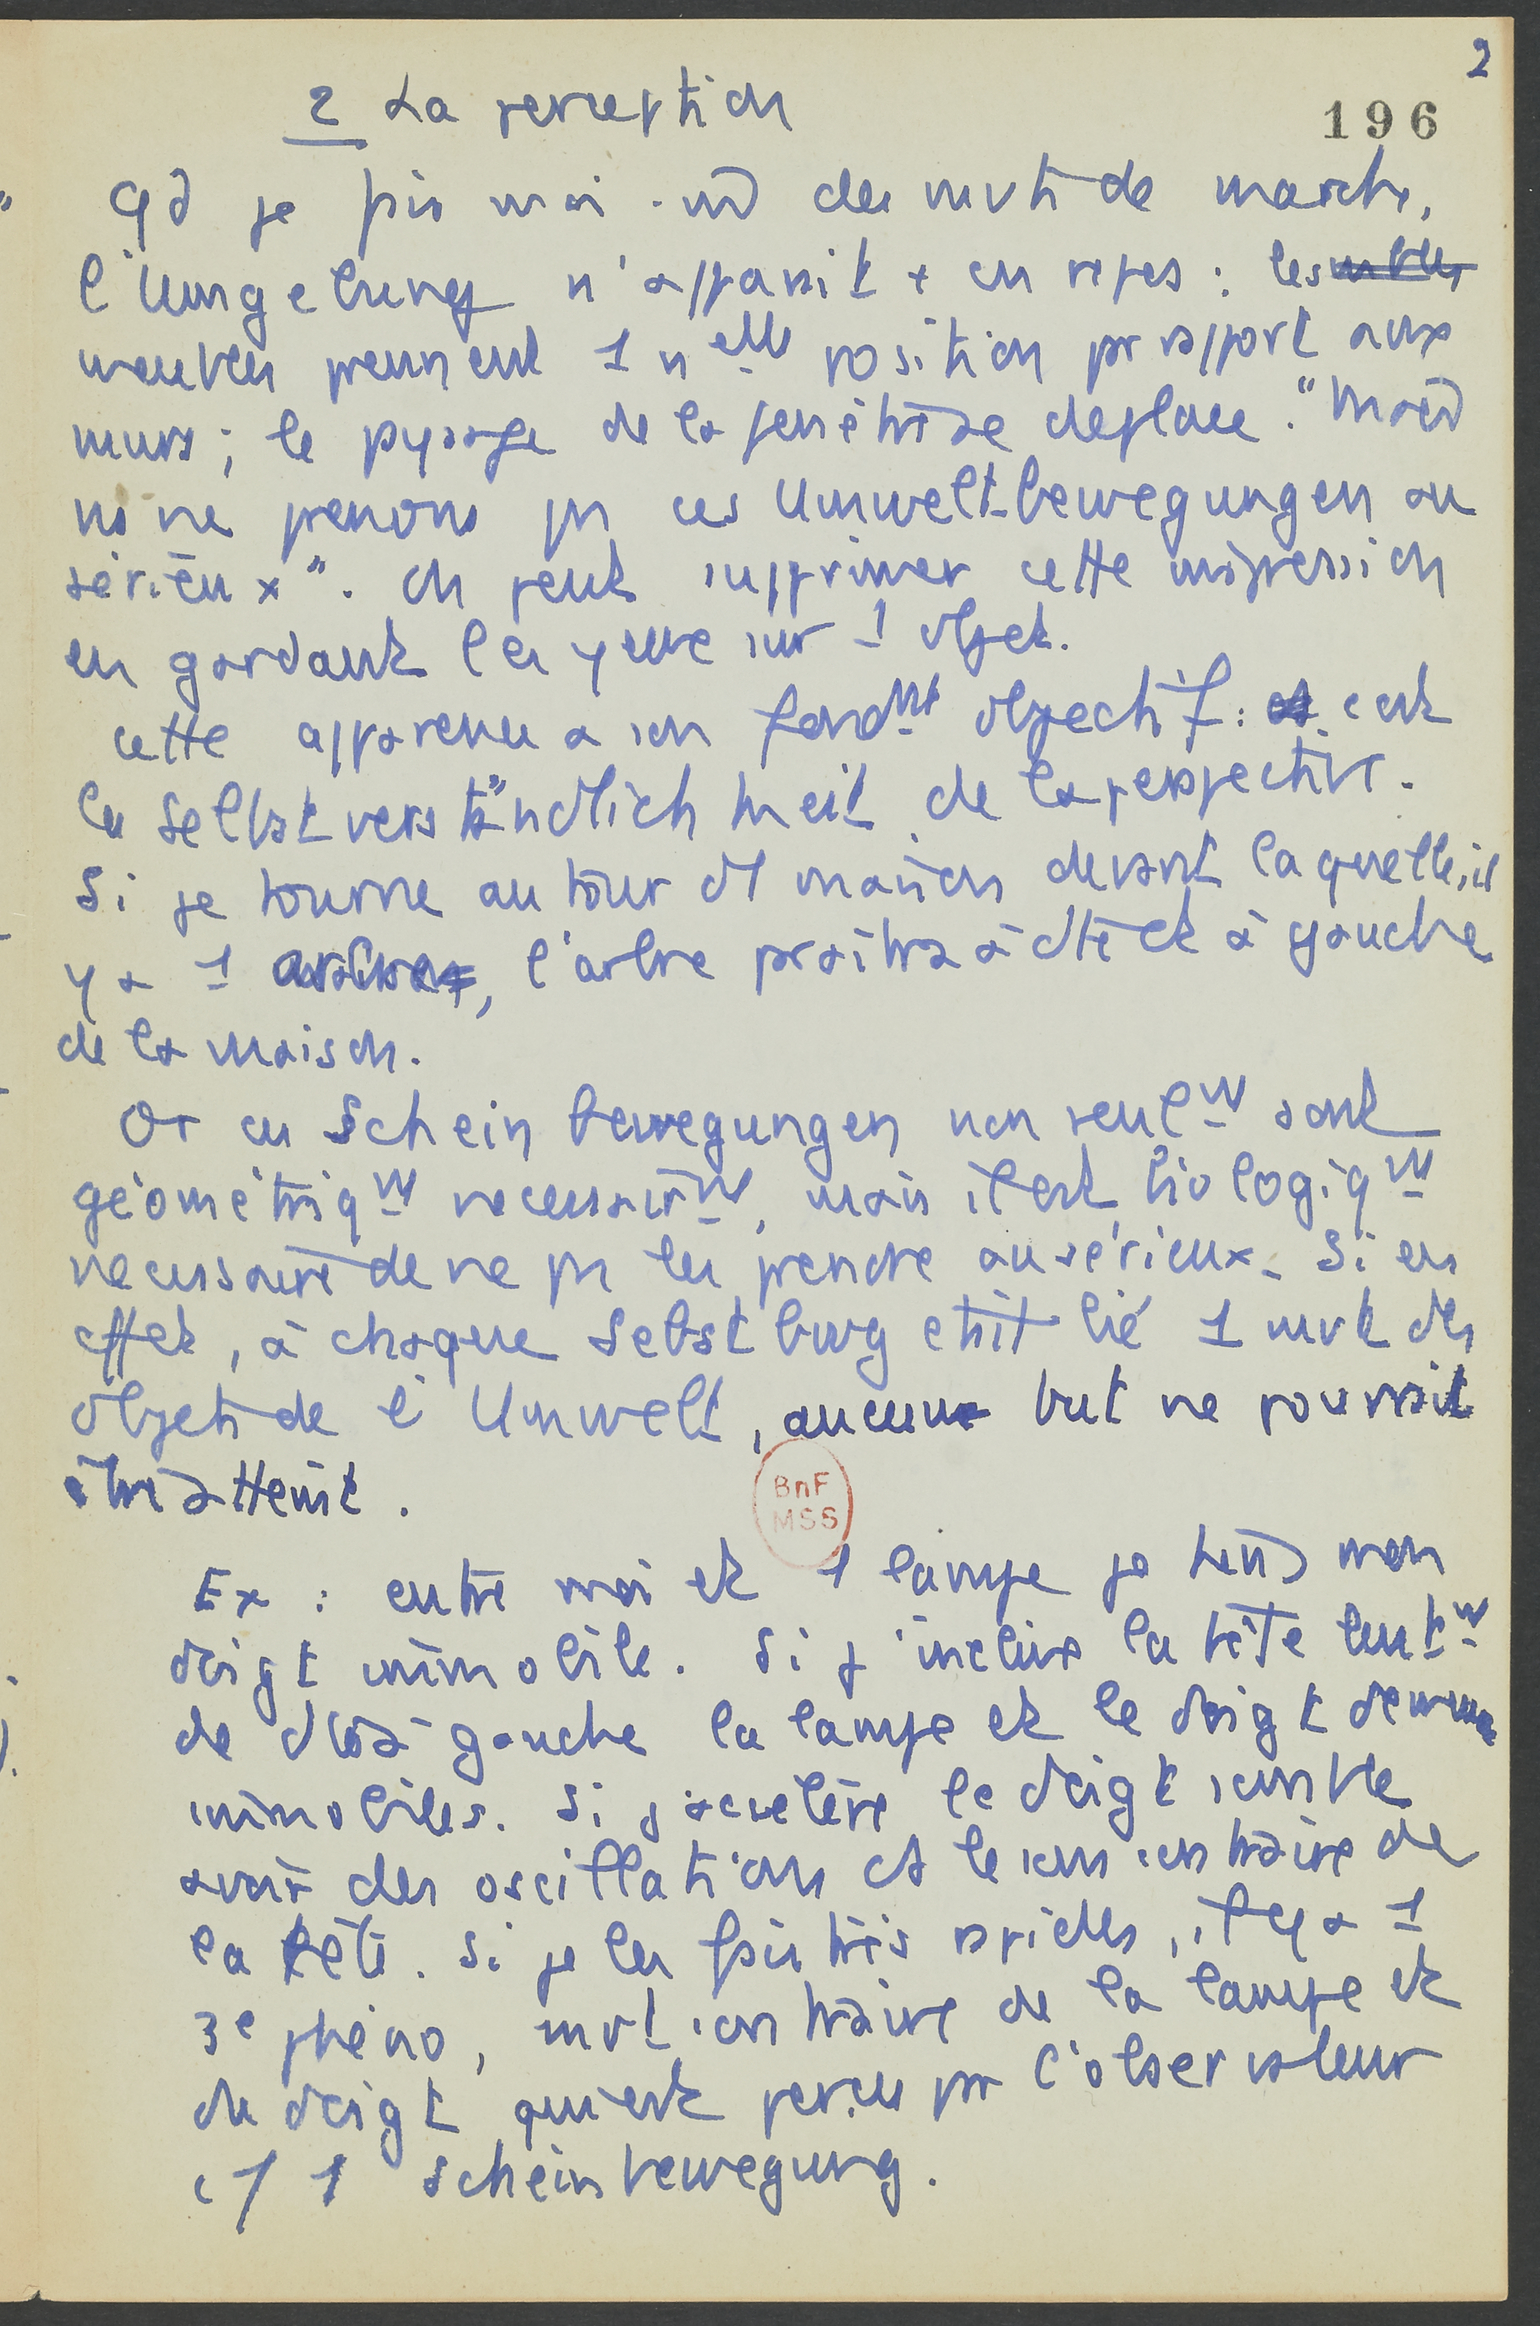 2
196
2 La perception
Qd je fais moi-m̂ des mvts de marche,
l'Umgebung n'apparait + en repos : les mbles
meubles prennent 1 nelle position pr rapport aux
murs ; le paysage de la fenêtre se deplace. "Mais
ns ne prenons pas ces Umweltbewegungen au
sérieux". On peut supprimer cette impression
en gardant les yeux sur 1 objet.
cette apparence a son fondmt objectif : c'est
la Selbstverständlichkeit de la perspective.
Si je tourne autour d'1 maison devant laquelle, il
y a 1 arbre, l'arbre paraitra à côté et à gauche
de la maison.
Or ces Scheinbewegungen non seulmt sont
géométriqmt necessairmt, mais il est biologiqmt
necessaire de ne pas les prendre au sérieux. Si en
effet, à chaque Selbstbwg était lié 1 mvt des
objets de l'Umwelt, aucune but ne pourrait
être atteint.
BnF
MSS
Ex : entre moi et 1 lampe je tends mon
doigt immobile. Si j'incline la tête lentmt
de dte à gauche la lampe et le doigt demeure
immobiles. Si j'accélère le doigt semble
avoir des oscillations ds le sens contraire de
la tête. Si je les fais très rapides, il y a 1
3e phéno, mvt contraire de la lampe et
du doigt qui est perçu pr l'observateur
c/ 1 Scheinbewegung.